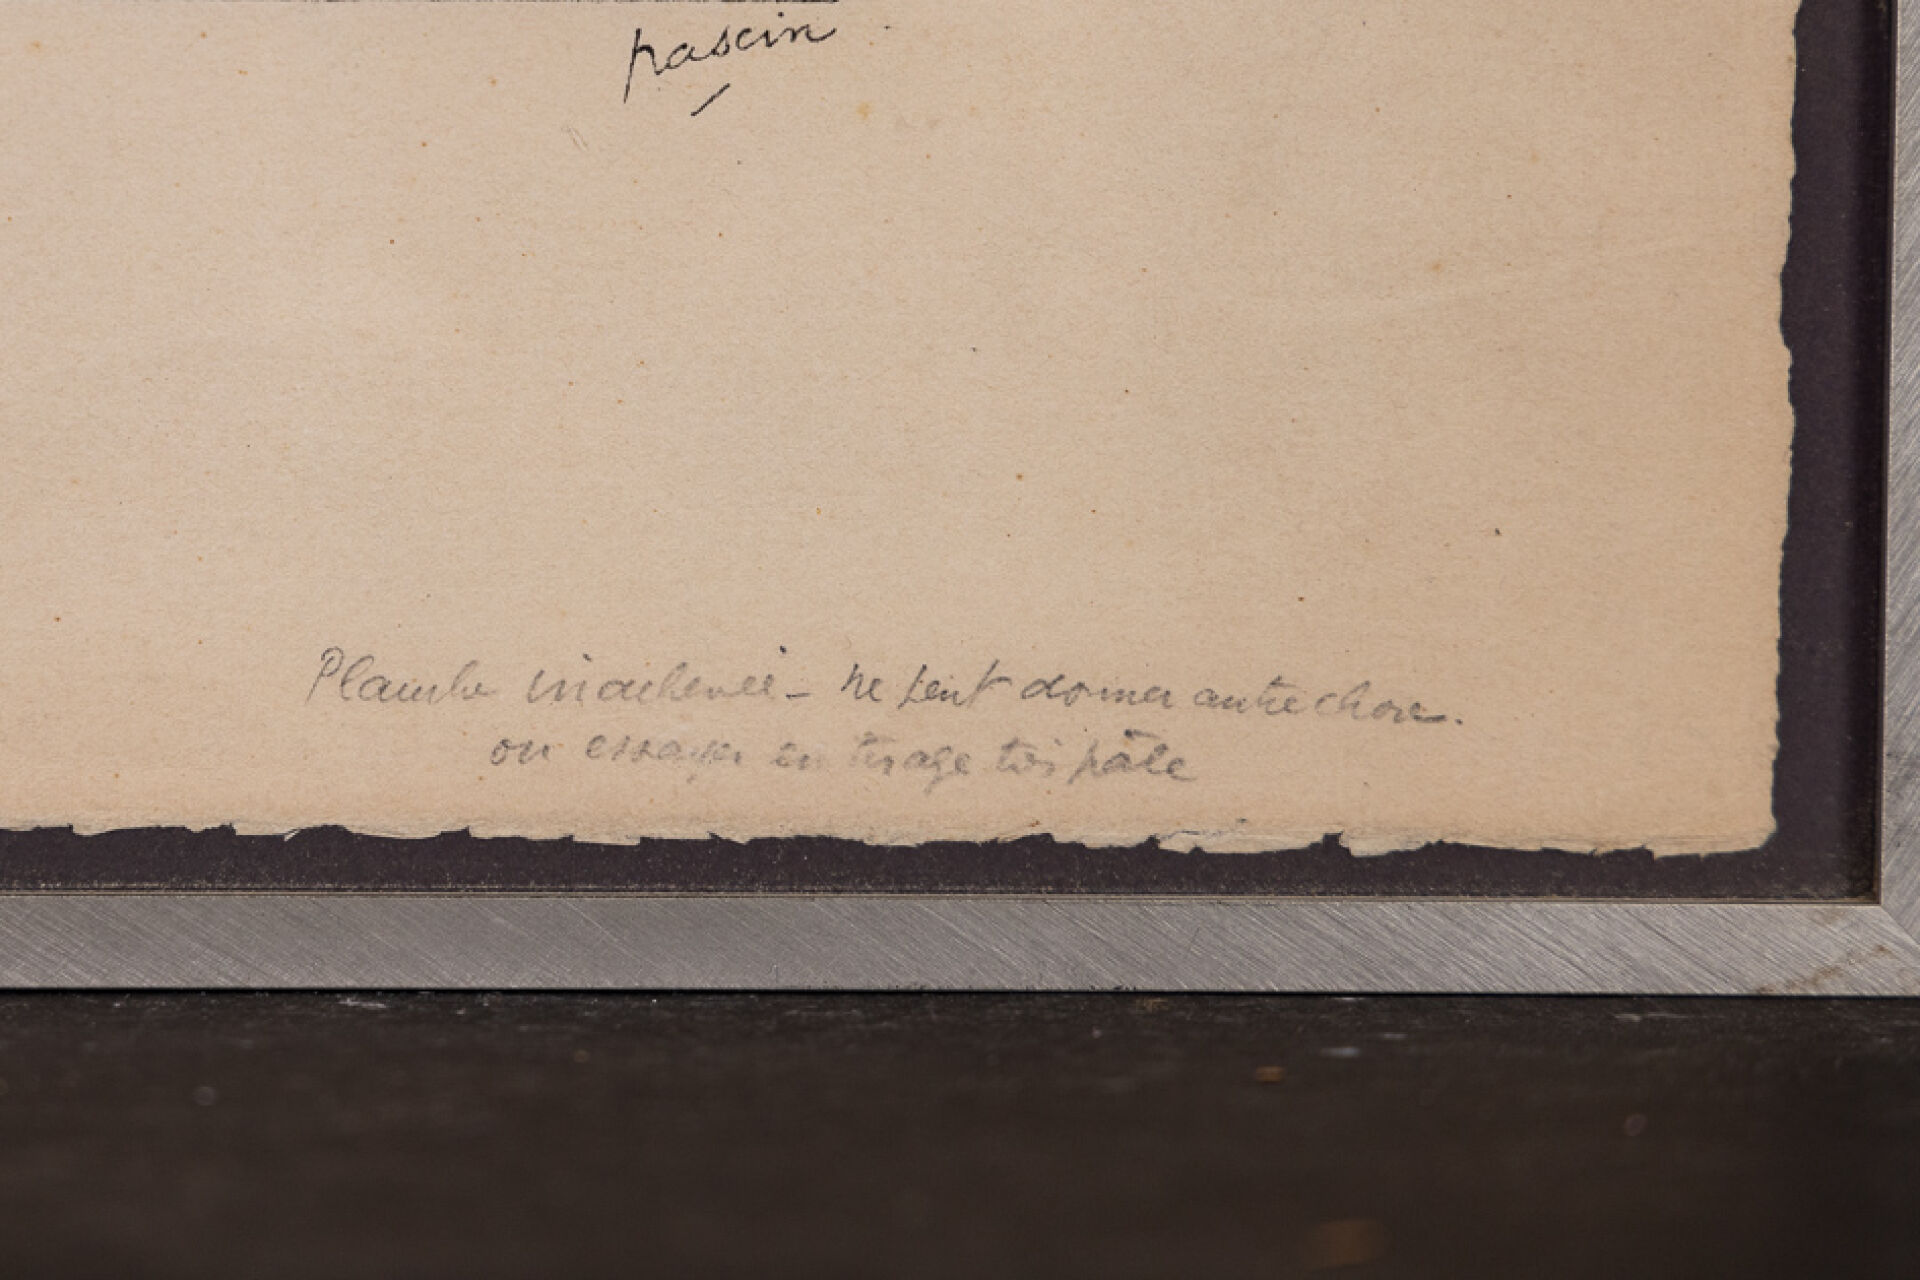 pascin
Planche inachevée - ne peut donner autre chose.
ou essayer en tirage très pâle